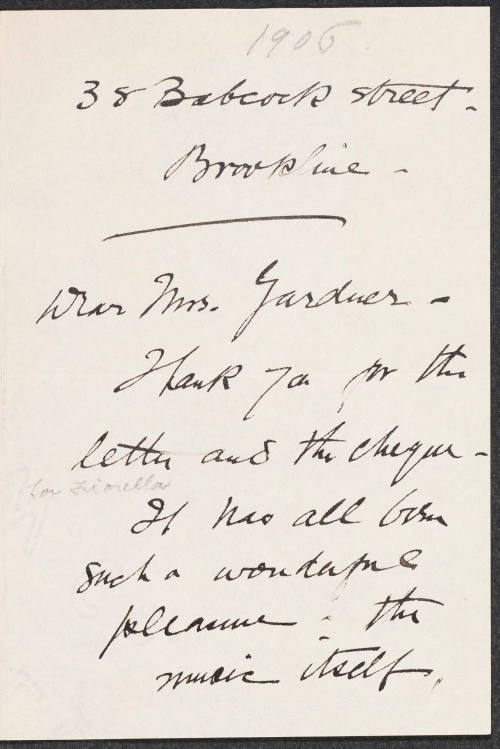 1906
38 Babcock street -
Brookline -
Dear Mrs. Gardner -
Thank you for the
letter and the cheque -
for Fiorella
It has all been
such a wonderful
pleasure - the
music itself,